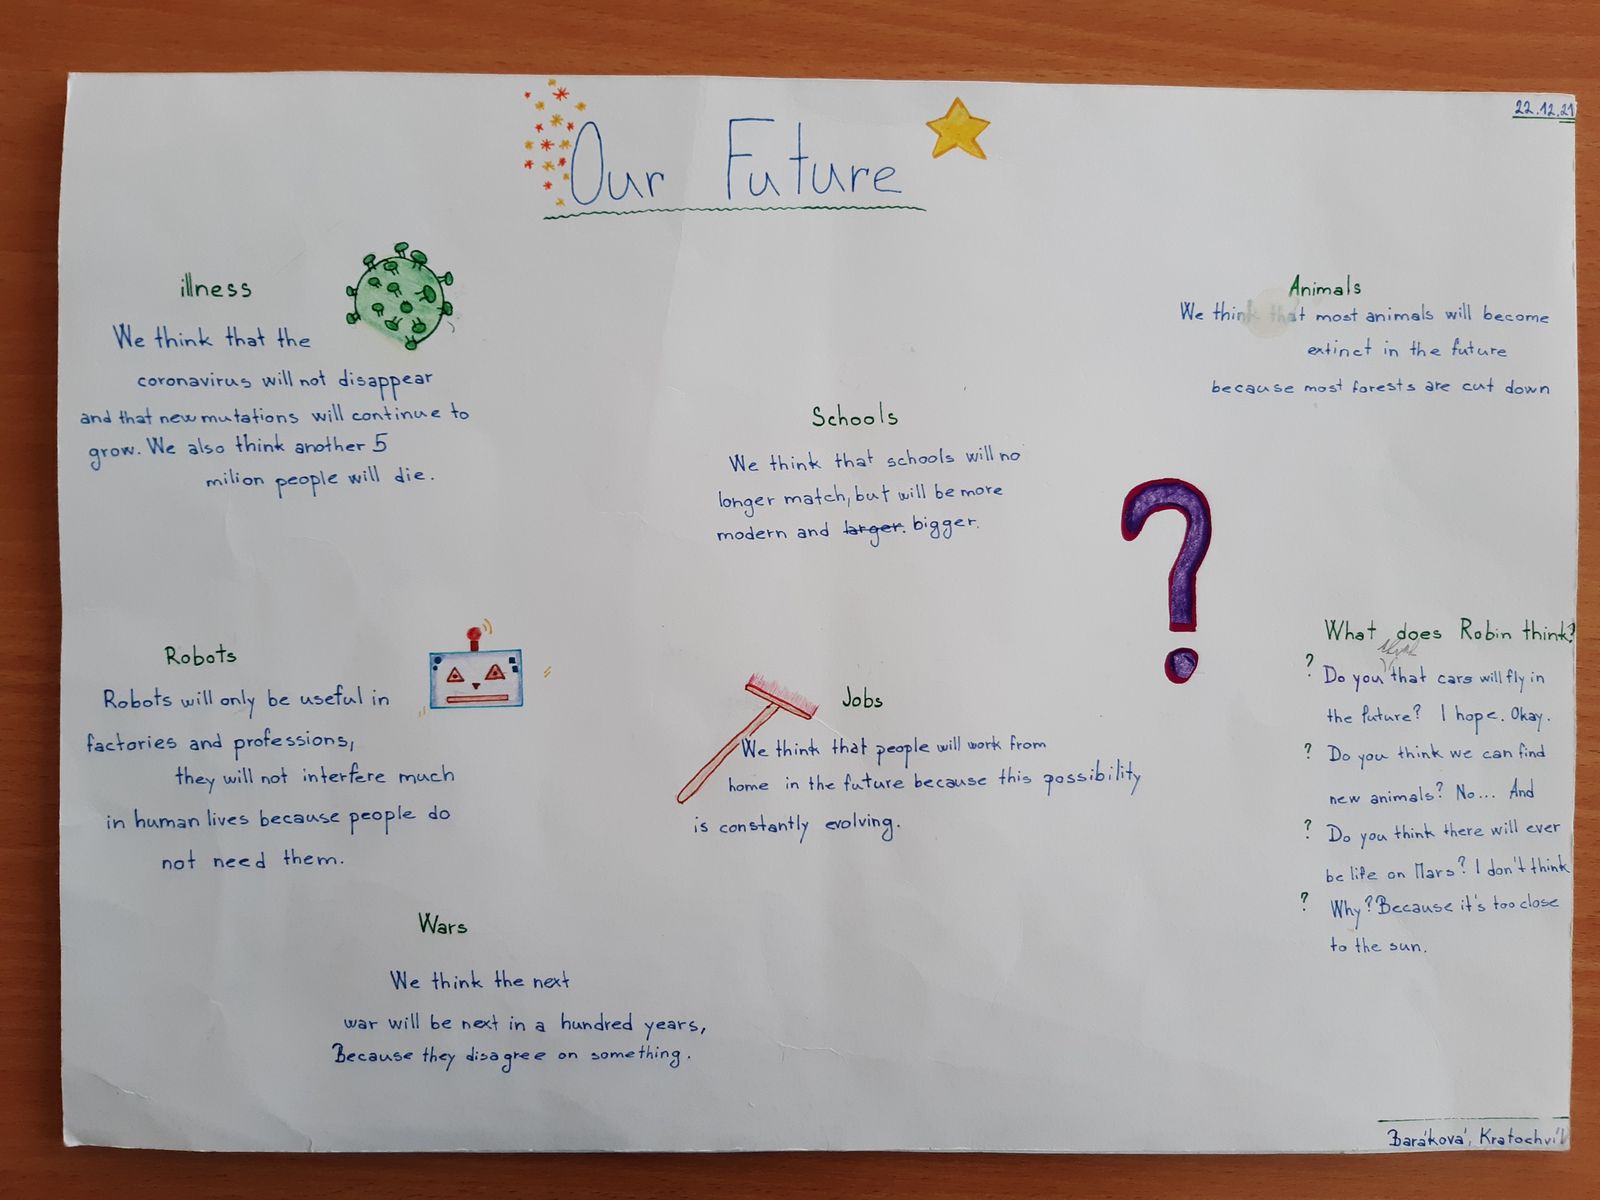 22.12.21
Our Future
illness
We think that the
coronavirus will not disappear
and that new mutations will continue to
grow. We also think another 5
milion people will die.
Animals
We think that most animals will become
extinct in the future
because most forests are cut down
Schools
We think that schools will no
longer match, but will be more
modern and larger. bigger.
Robots
Robots will only be useful in
factories and professions,
they will not interfere much
in human lives because people do
not need them.
Jobs
We think that people will work from
home in the future because this possibility
is constantly evolving.
What does Robin think?
? Do you think that cars will fly in
the future? I hope. Okay.
? Do you think we can find
new animals? No... And
? Do you think there will ever
be life on Mars? I don't think
? Why? Because it's too close
to the sun.
Wars
We think the next
war will be next in a hundred years,
Because they disagree on something.
Baráková, Kratochvíl